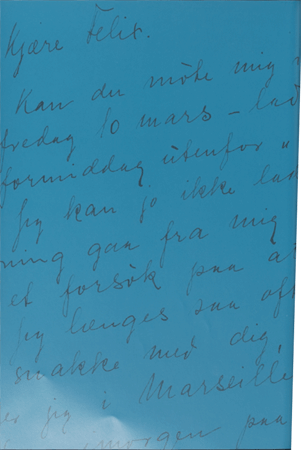 Kjære Felix.
Kan du møte mig
fredag 10 mars – lad
formiddag utenfor "
Jeg kan jo ikke lad
ning gaa fra mig
et forsök paa a
Jeg længes saa oft
snakke med dig,
er jeg i Marseille
imorgen paa